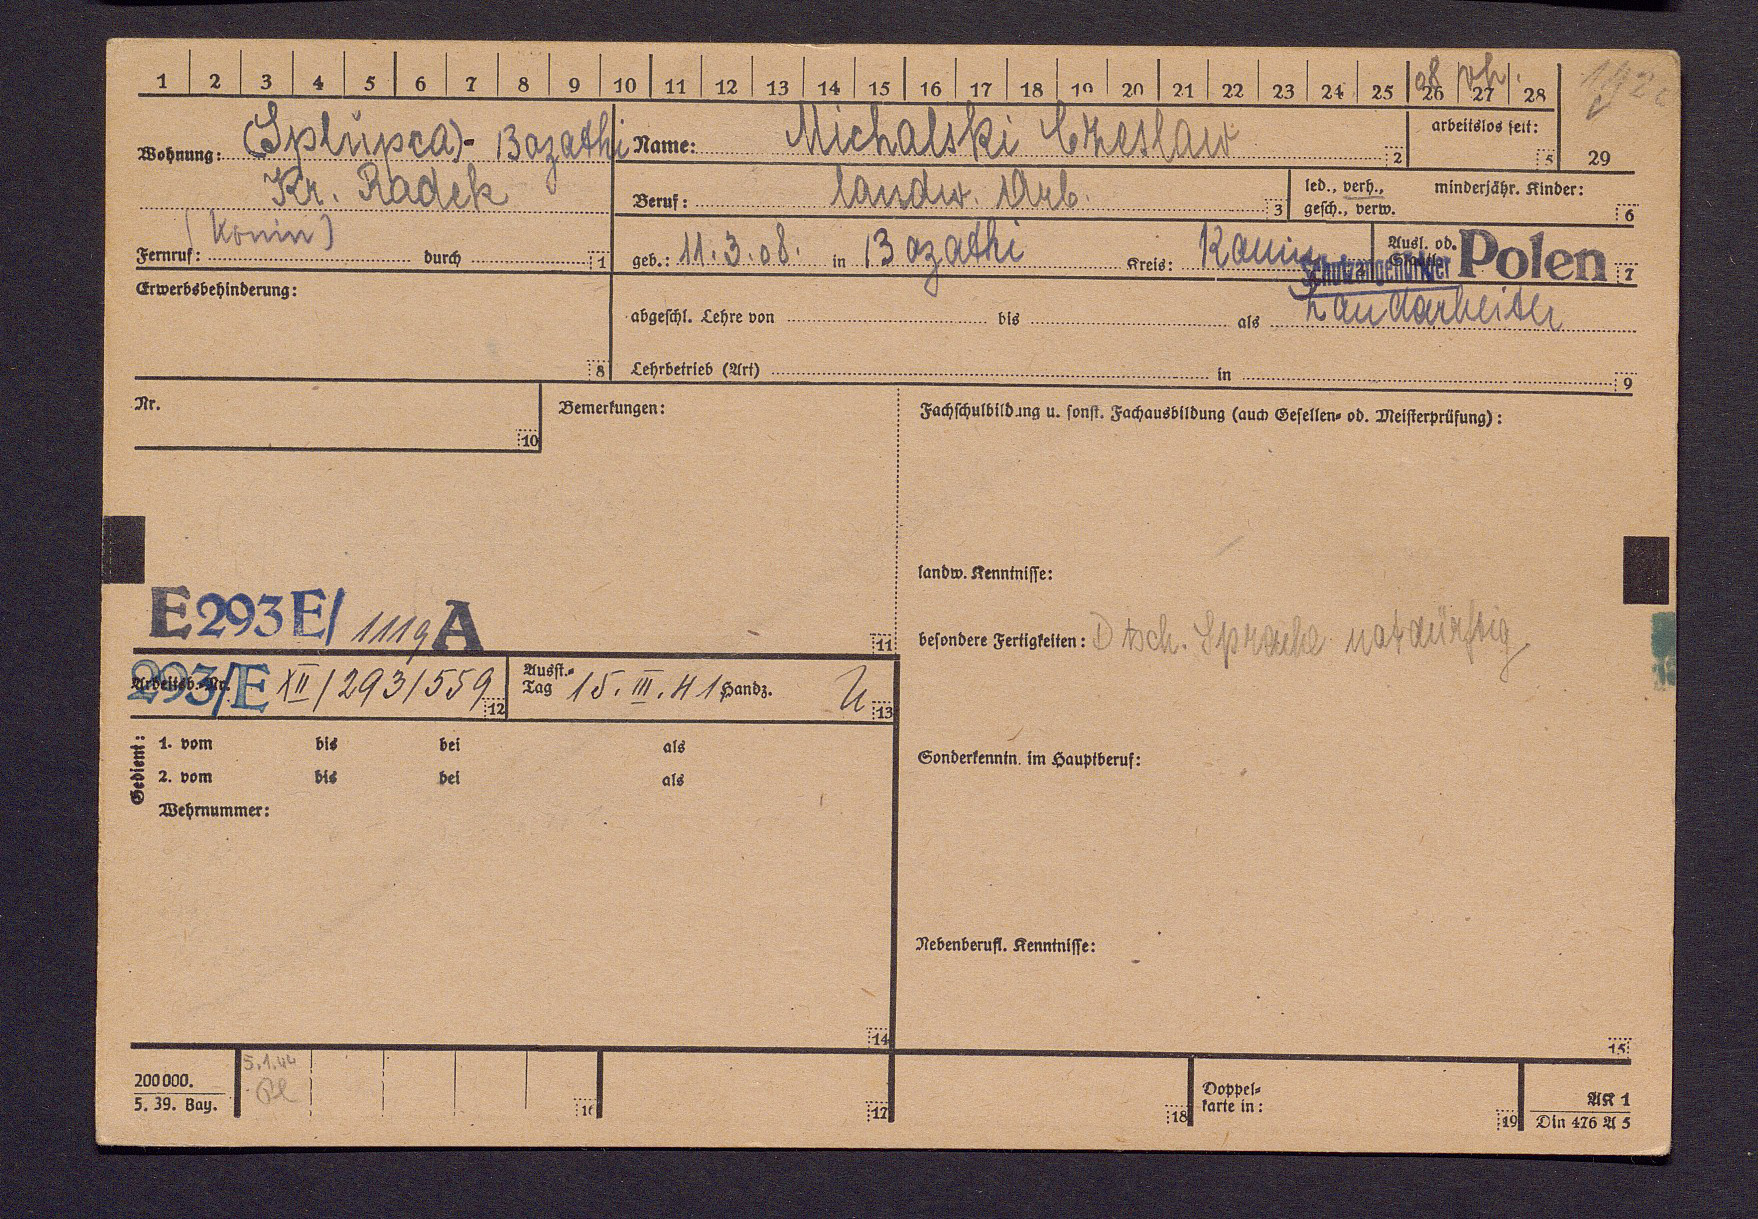 1 2 3 4 5 6 7 8 9 10 11 12 13 14 15 16 17 18 19 20 21 22 23 24 25 26 27 28
Wohnung: (Splupca)- Bozathi
Kr. Radek
(Konin)
Fernruf: durch 1
Name: Michalski Czeslaw 2
arbeitslos seit: 5
29
Beruf: landw. Arb. 3
led., verh., gesch., verw.
minderjähr. Kinder: 6
geb.: 11.3.08. in Bozathi Kreis: Konin
Ausl. od. Polen 7
Schutzangehöriger
Erwerbsbehinderung: 8
abgeschl. Lehre von bis als Landarbeiter
Lehrbetrieb (Art) in 9
Nr. 10
Bemerkungen:
Fachschulbildung u. sonst. Fachausbildung (auch Gesellen- od. Meisterprüfung):
landw. Kenntnisse:
E 293 E/ 1119 A 11
besondere Fertigkeiten: Dtsch. Sprache notdürftig
293/E
Arbeitsb.-Nr. XII/293/559 12
Ausst.-Tag 15. III. 41 Handz. 13
Gedient:
1. vom bis bei als
2. vom bis bei als
Wehrnummer:
Sonderkenntn. im Hauptberuf:
Nebenberufl. Kenntnisse:
14
15
200 000.
5. 39. Bay.
5.1.44
16
17
18
Doppelkarte in: 19
AK 1
Din 476 A 5